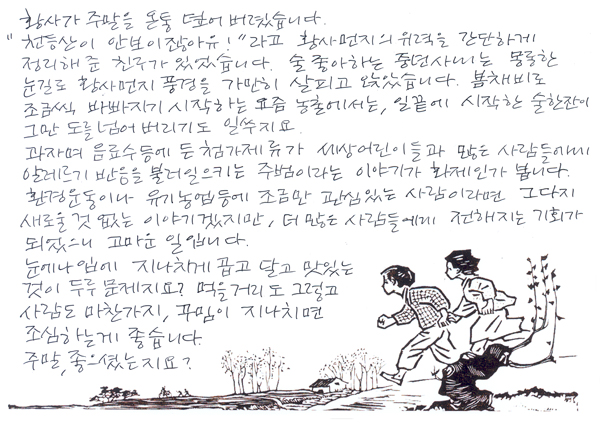 황사가 주말을 온통 덮어 버렸습니다.
"천등산이 안보이잖아유!"라고 황사먼지의 위력을 간단하게
정리해 준 친구가 있었습니다. 술 좋아하는 중년사내는 몽롱한
눈길로 황사먼지 풍경을 가만히 살피고 앉았습니다. 봄채비로
조금씩 바빠지기 시작하는 요즘 농촌에서는, 일끝에 시작한 술한잔이
그만 도를 넘어 버리기도 일쑤지요.
과자며 음료수등에 든 첨가제류가 세상어린이들과 많은 사람들에게
알레르기 반응을 불러일으키는 주범이라는 이야기가 화제인가 봅니다.
환경운동이나 유기농업등에 조금만 관심있는 사람이라면 그다지
새로울것 없는 이야기겠지만, 더 많은 사람들에게 전해지는 기회가
되었으니 고마운 일입니다.
눈에나 입에 지나치게 곱고 달고 맛있는
것이 두루 문제지요? 먹을거리도 그렇고
사람도 마찬가지, 꾸밈이 지나치면
조심하는게 좋습니다.
주말, 좋으셨는지요?